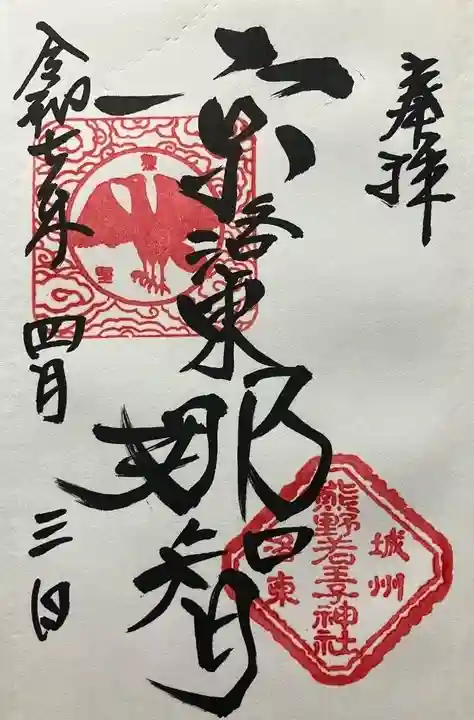 奉拝
京洛東
那智
令和七年
四月
三日
城州
熊野若王子神社
洛東